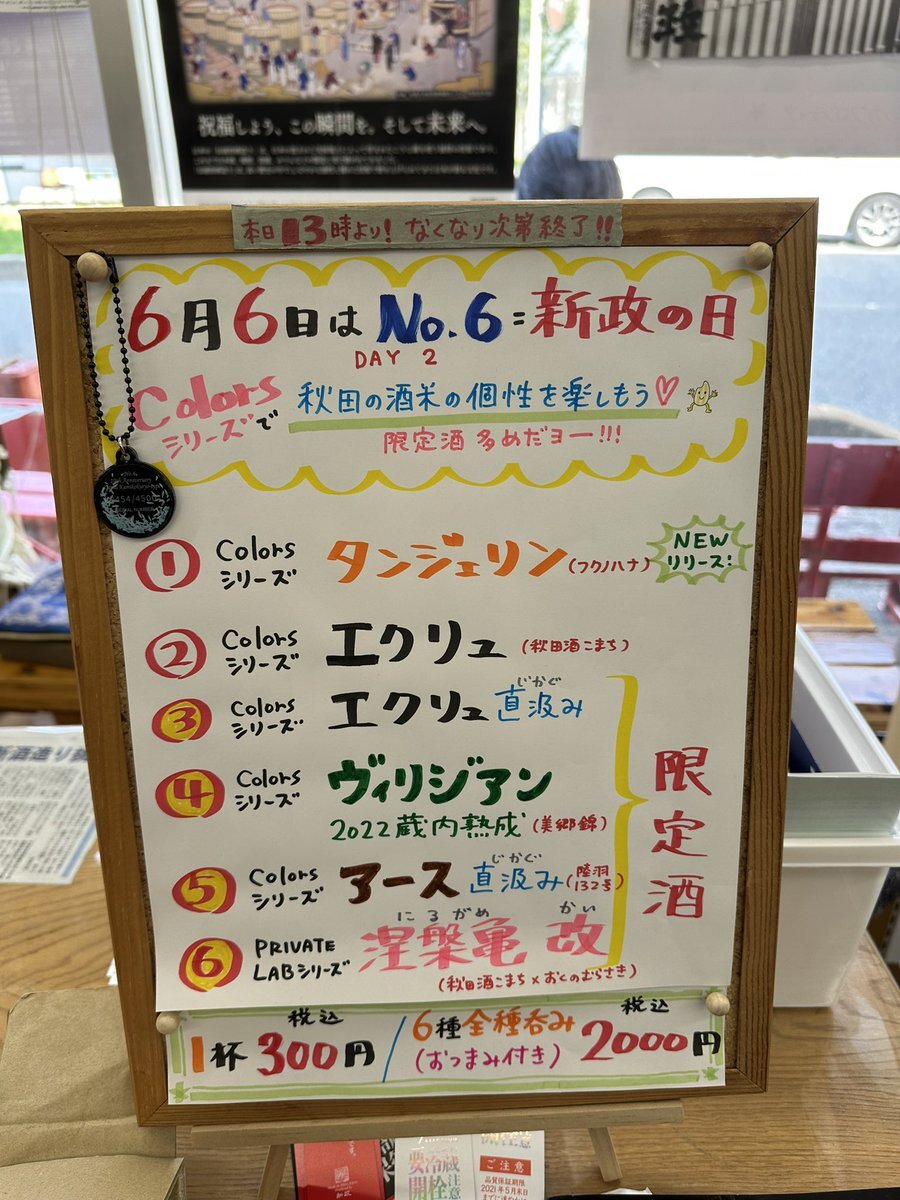 祝福しよう、この瞬間を、そして未来へ。
本日3時より! なくなり次第終了!!
6月6日は No.6=新政の日
DAY 2
Colorsシリーズで 秋田の酒米の個性を楽しもう♡
限定酒 多めだヨー!!!
① Colorsシリーズ タンジェリン(フクノハナ) NEWリリース!
② Colorsシリーズ エクリュ(秋田酒こまち)
じかぐ
③ Colorsシリーズ エクリュ 直汲み
④ Colorsシリーズ ヴィリジアン
2022蔵内熟成(美郷錦)
じかぐ
⑤ Colorsシリーズ アース 直汲み(陸羽132号)
にるがめ かい
⑥ PRIVATE LABシリーズ 涅槃亀 改
(秋田酒こまち×おくのむらさき)
限定酒
税込
1杯 300円/6種全種呑み
(おつまみ付き)
税込
2000円
要冷蔵
開栓注意
ご注意
品質保証期限
2021年5月末日